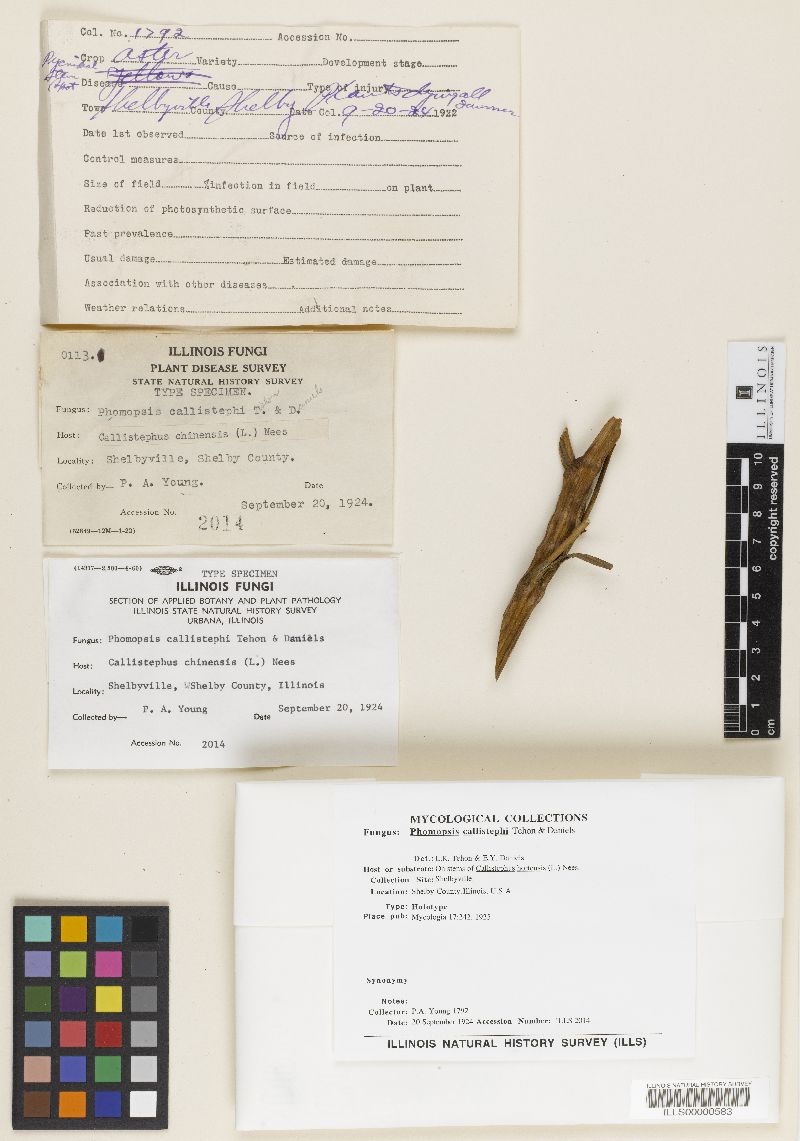 Col. No. 1792 Accession No.
Crop Aster Variety Development stage
Disease Yellows Cause Type of injury
Stem
Town Shelbyville County Shelby Date Col. 9-20-24 1922
Date 1st observed Source of infection
Control measures
Size of field %infection in field on plant
Reduction of photosynthetic surface
Past prevalence
Usual damage Estimated damage
Association with other diseases
Weather relations Additional notes
0113.
ILLINOIS FUNGI
PLANT DISEASE SURVEY
STATE NATURAL HISTORY SURVEY
TYPE SPECIMEN.
Fungus: Phomopsis callistephi T. & D.
Host: Callistephus chinensis (L.) Nees
Locality: Shelbyville, Shelby County.
Collected by— P. A. Young. Date
September 20, 1924.
Accession No. 2014
(62849—12M—4-22)
(14337—2,500—6-60) TYPE SPECIMEN
ILLINOIS FUNGI
SECTION OF APPLIED BOTANY AND PLANT PATHOLOGY
ILLINOIS STATE NATURAL HISTORY SURVEY
URBANA, ILLINOIS
Fungus: Phomopsis callistephi Tehon & Daniels
Host: Callistephus chinensis (L.) Nees
Locality: Shelbyville, Shelby County, Illinois
Collected by— P. A. Young Date September 20, 1924
Accession No. 2014
MYCOLOGICAL COLLECTIONS
Fungus: Phomopsis callistephi Tehon & Daniels
Det.: L.R. Tehon & E.Y. Daniels
Host or substrate: On stems of Callistephus hortensis (L.) Nees.
Collection Site: Shelbyville
Location: Shelby County, Illinois, U.S.A.
Type: Holotype
Place pub: Mycologia 17:242. 1925
Synonymy
Notes:
Collector: P.A. Young 1792
Date: 20 September 1924 Accession Number: ILLS 2014
ILLINOIS NATURAL HISTORY SURVEY (ILLS)
ILLINOIS NATURAL HISTORY SURVEY
ILLS00000583
ILLINOIS
0 1 2 3 4 5 6 7 8 9 10
cm
copyright reserved